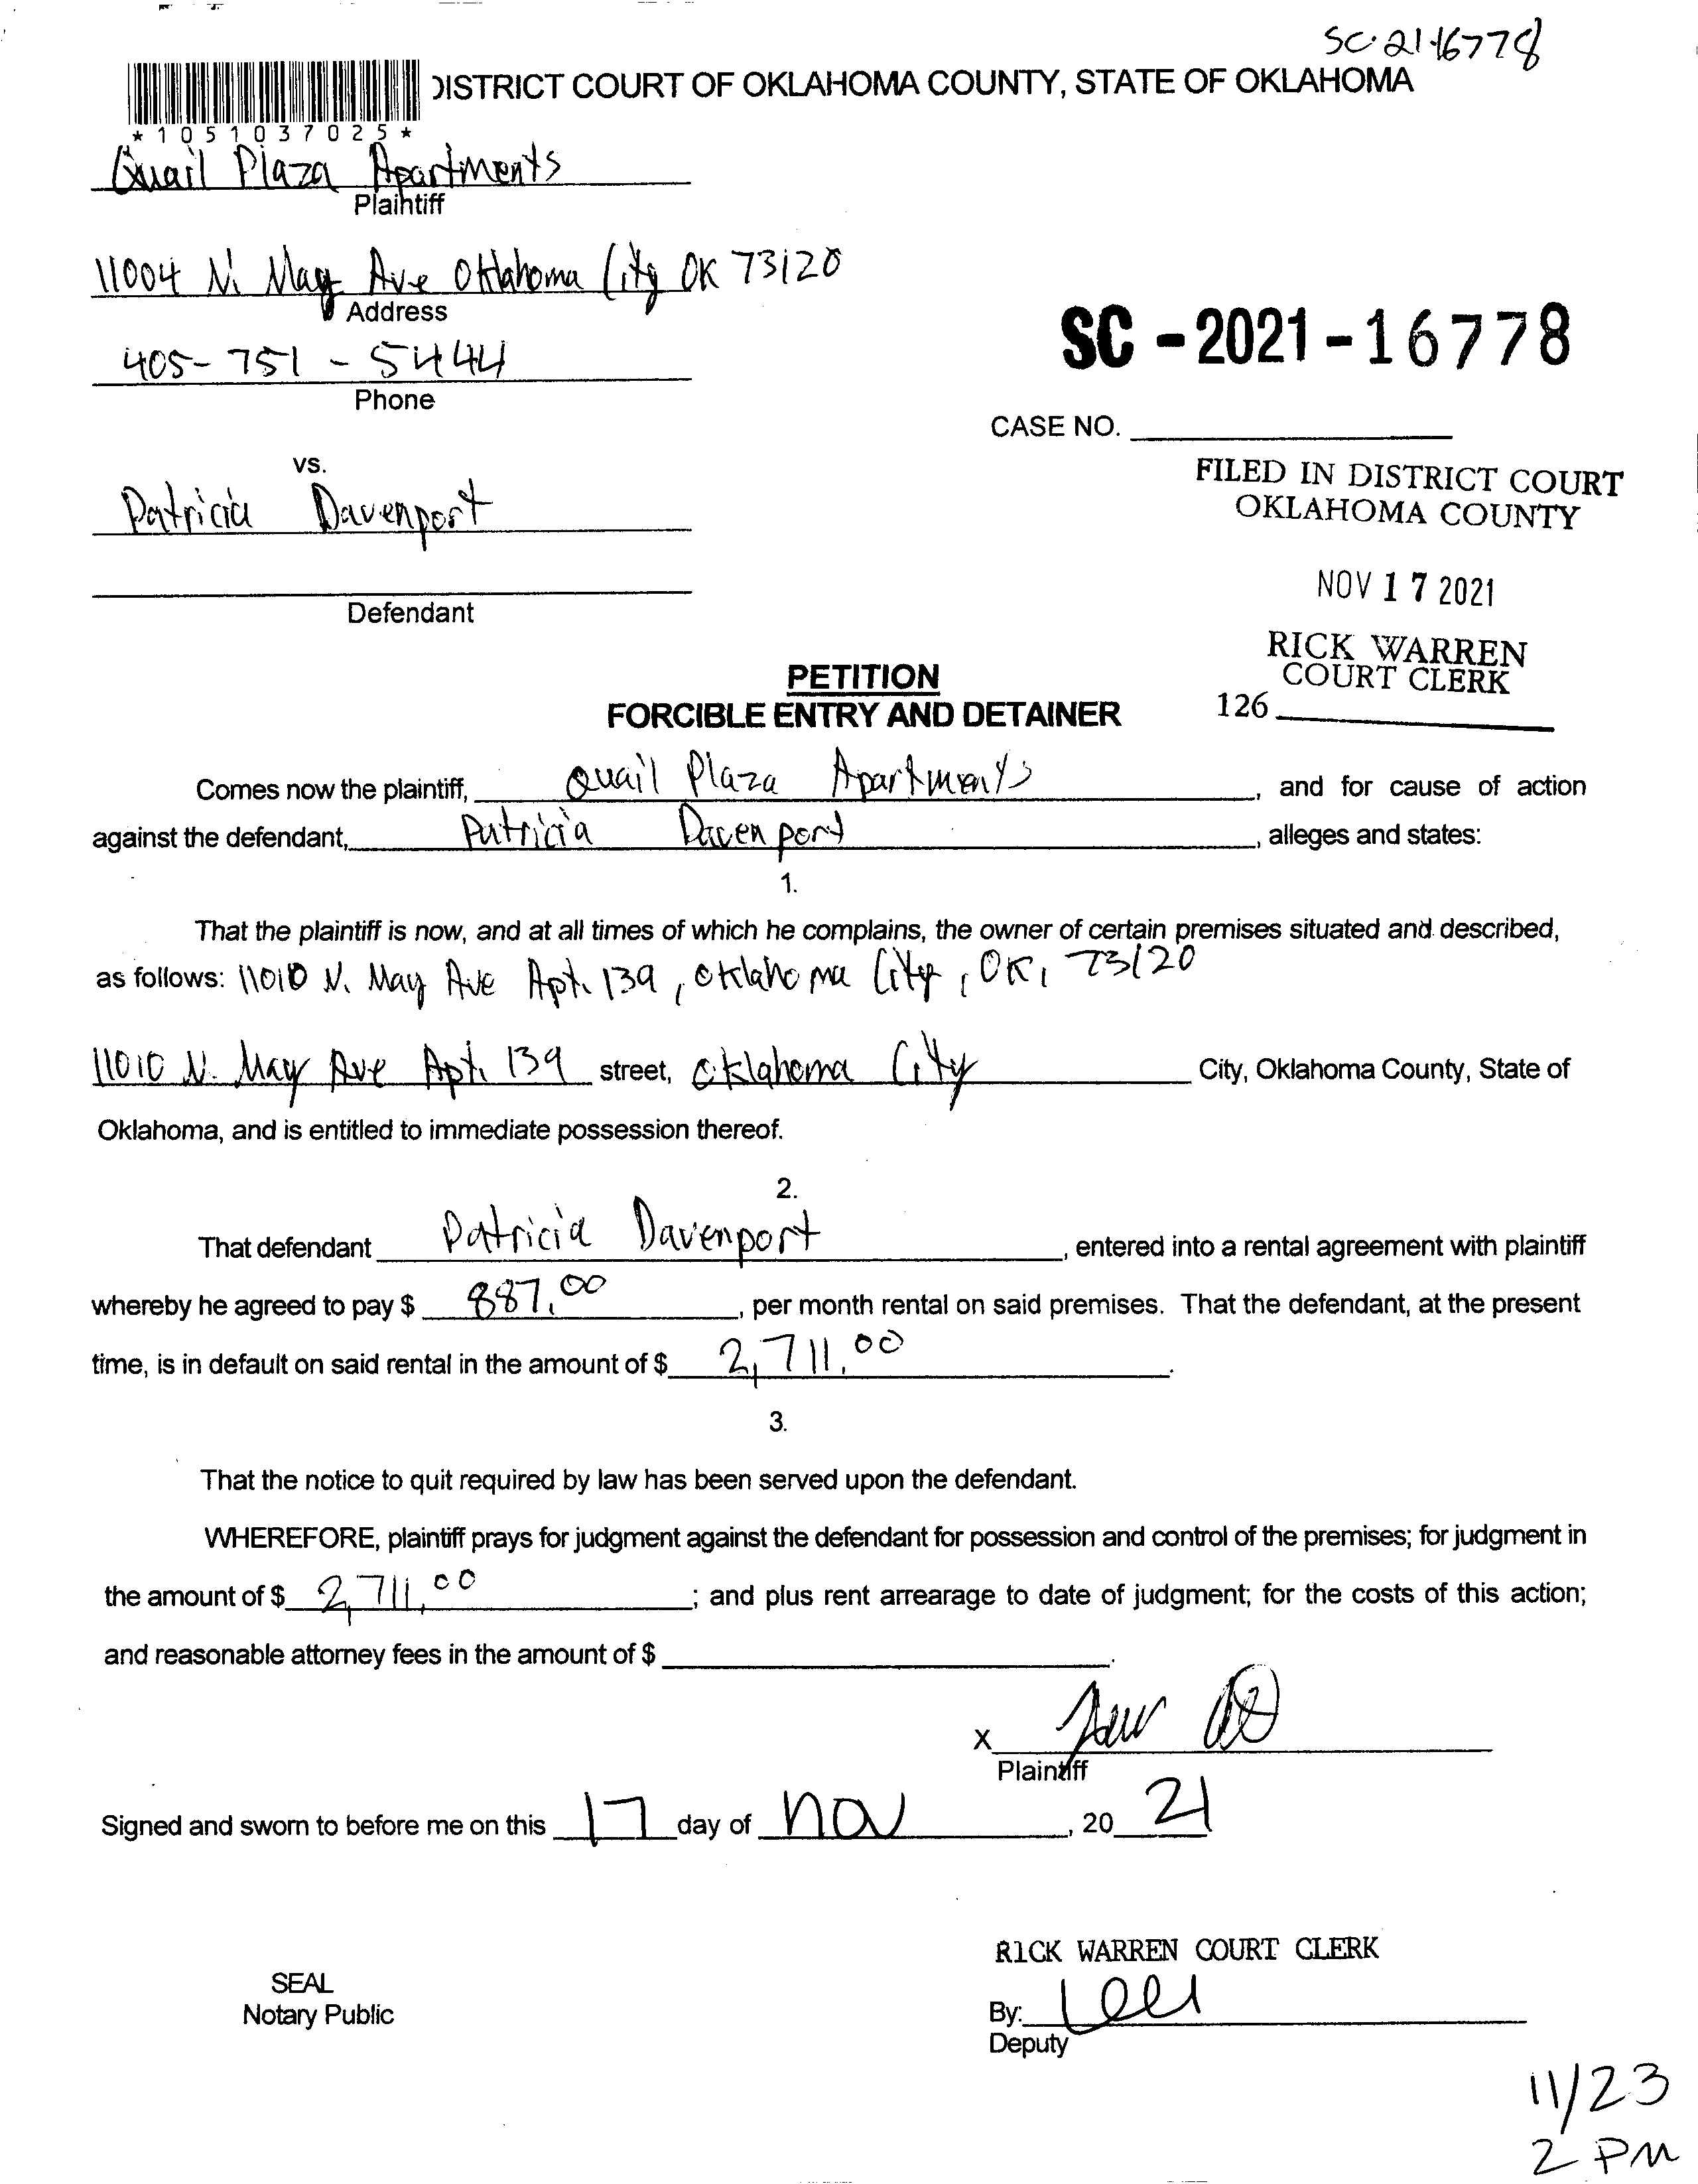 SC-21-16778
DISTRICT COURT OF OKLAHOMA COUNTY, STATE OF OKLAHOMA
*1051037025*
Quail Plaza Apartments
Plaintiff
11004 N. May Ave Oklahoma City OK 73120
Address
405-751-5444
Phone
SC-2021-16778
CASE NO.
vs.
Patricia Davenport
Defendant
FILED IN DISTRICT COURT
OKLAHOMA COUNTY
NOV 17 2021
RICK WARREN
COURT CLERK
126
PETITION
FORCIBLE ENTRY AND DETAINER
Comes now the plaintiff, Quail Plaza Apartments, and for cause of action
against the defendant, Patricia Davenport, alleges and states:
1.
That the plaintiff is now, and at all times of which he complains, the owner of certain premises situated and described,
as follows: 11010 N. May Ave Apt. 139, Oklahoma City, OK, 73120
11010 N. May Ave Apt. 139 street, Oklahoma City City, Oklahoma County, State of
Oklahoma, and is entitled to immediate possession thereof.
2.
That defendant Patricia Davenport, entered into a rental agreement with plaintiff
whereby he agreed to pay $ 887.00, per month rental on said premises. That the defendant, at the present
time, is in default on said rental in the amount of $ 2,711.00.
3.
That the notice to quit required by law has been served upon the defendant.
WHEREFORE, plaintiff prays for judgment against the defendant for possession and control of the premises; for judgment in
the amount of $ 2,711.00; and plus rent arrearage to date of judgment; for the costs of this action;
and reasonable attorney fees in the amount of $ .
X
Plaintiff
Signed and sworn to before me on this 17 day of Nov, 20 21
RICK WARREN COURT CLERK
SEAL
Notary Public
By:
Deputy
11/23
2 PM